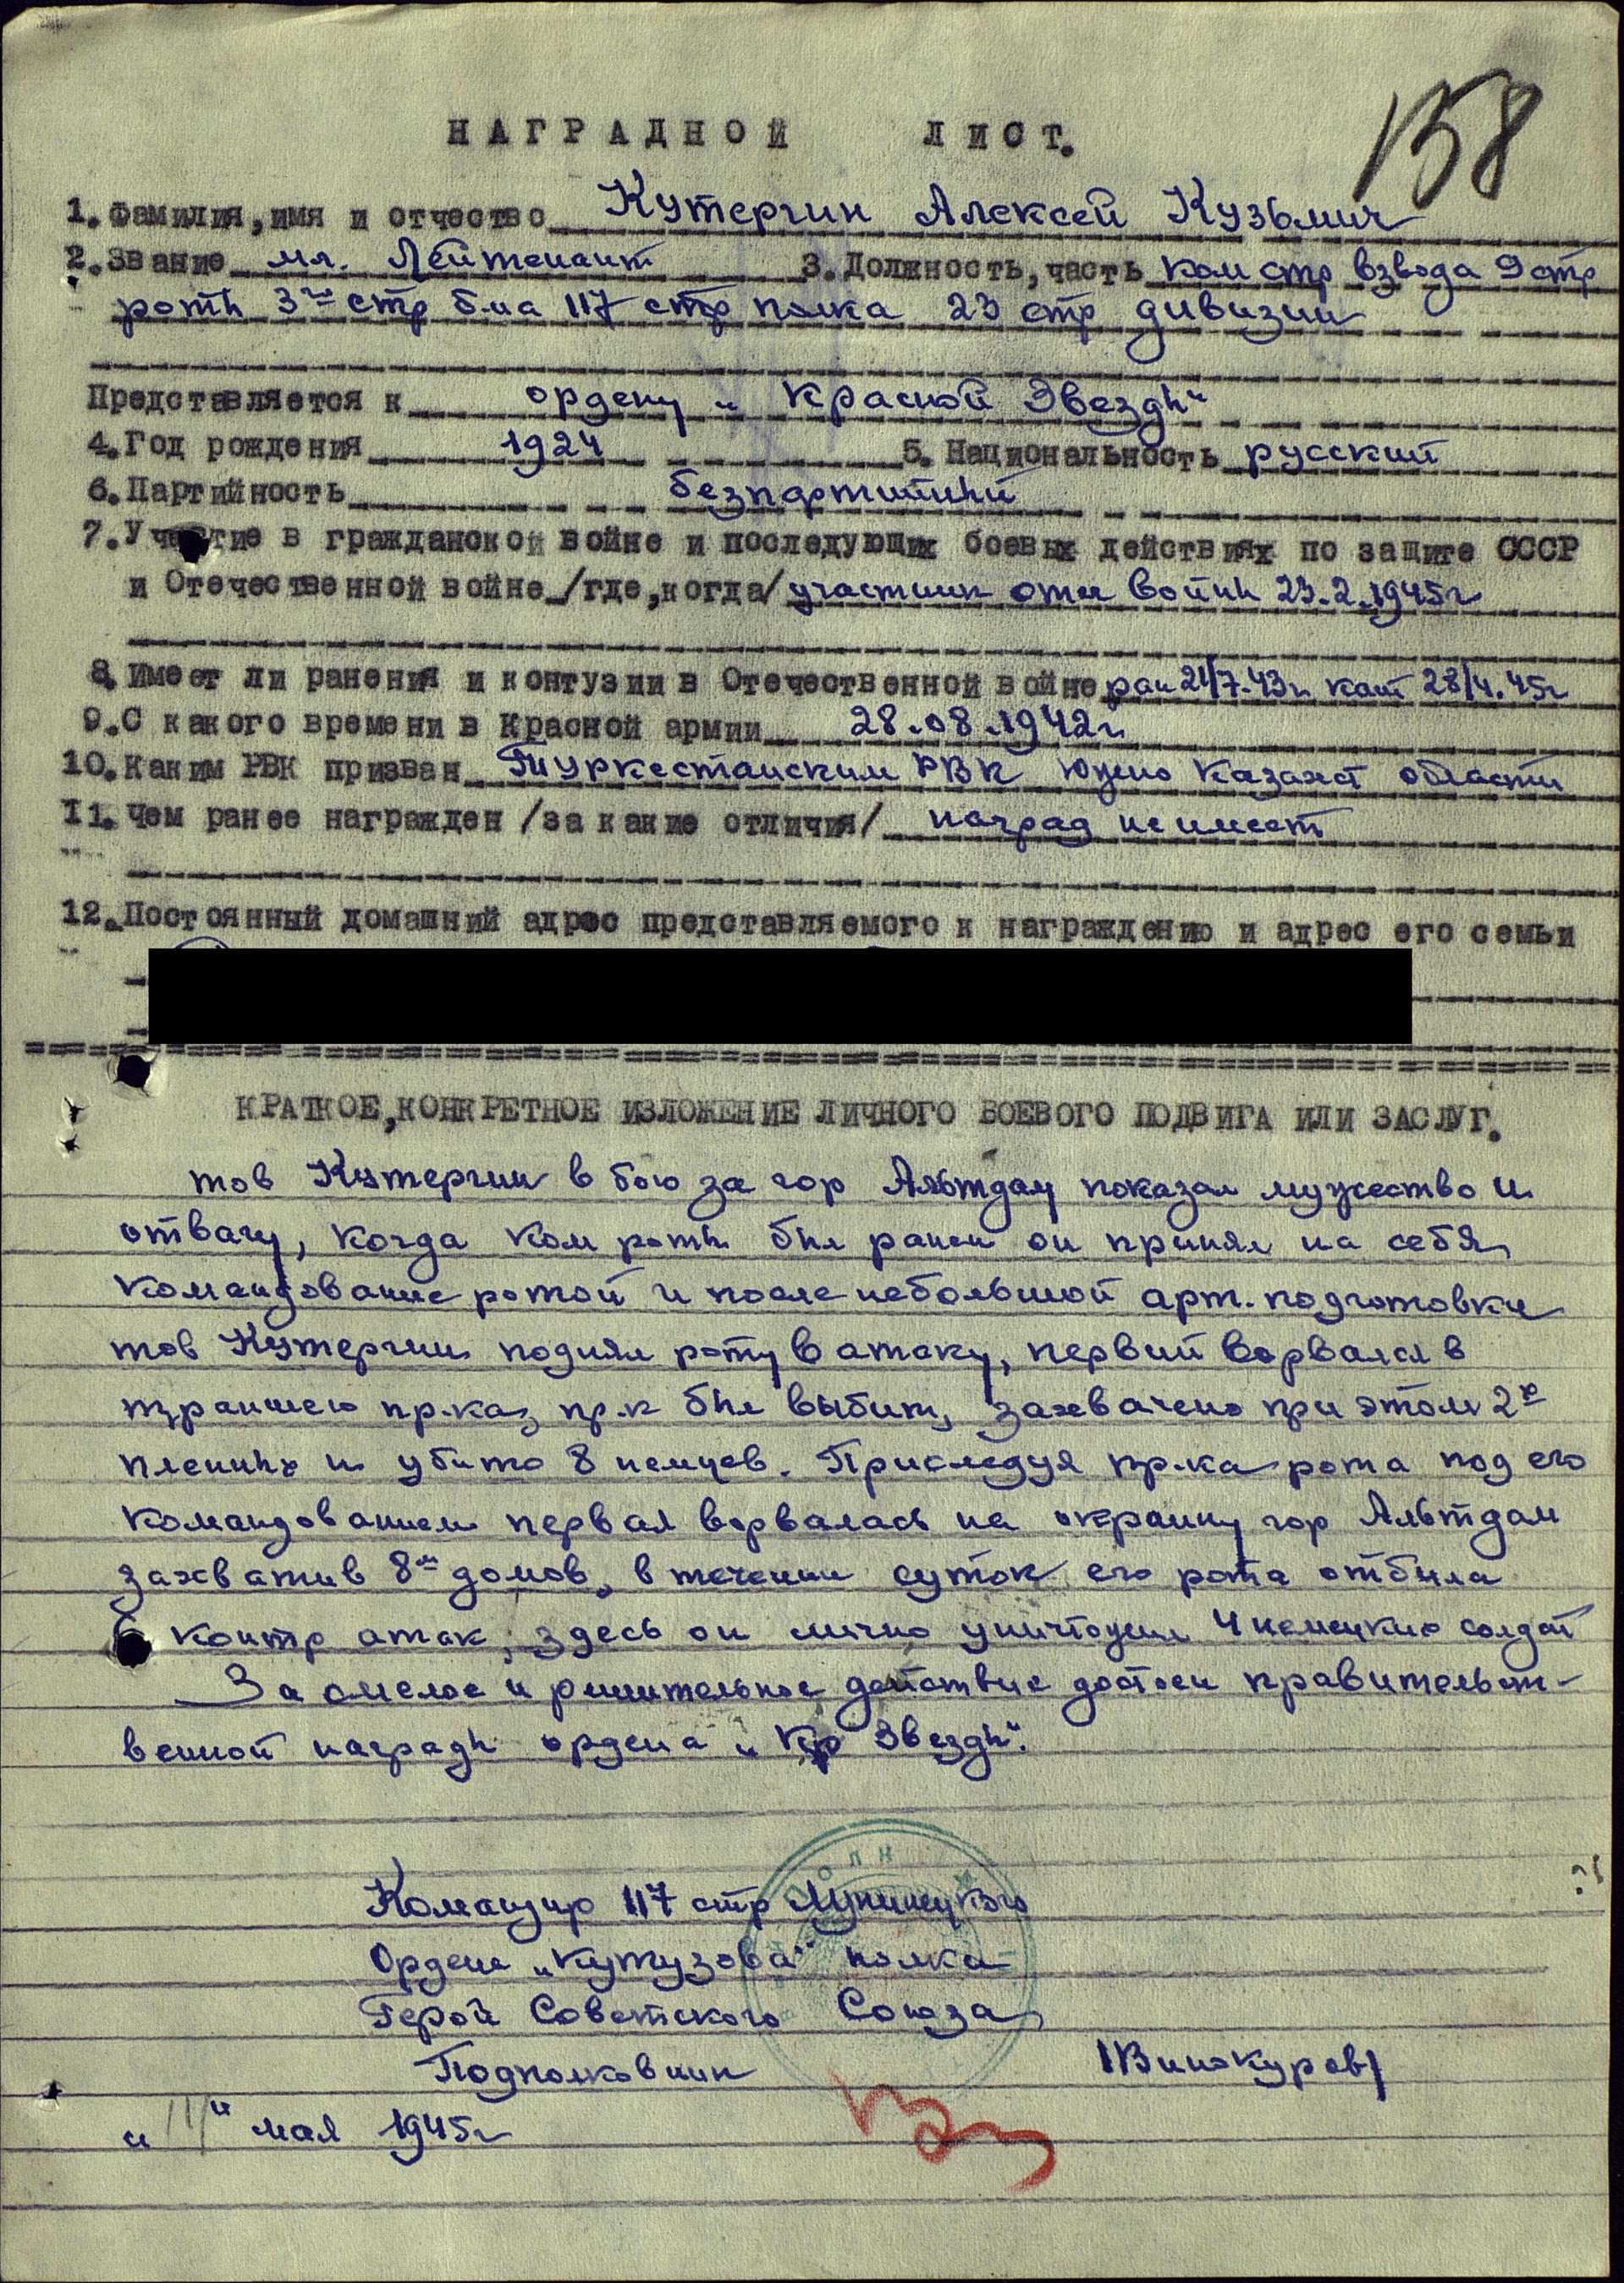 158
НАГРАДНОЙ ЛИСТ.
1. Фамилия, имя и отчество Кутергин Алексей Кузьмич
2. Звание мл. Лейтенант 3. Должность, часть ком стр взвода 9 стр
роты 3го стр б-на 117 стр полка 23 стр дивизии
Представляется к ордену „Красной Звезды"
4. Год рождения 1924 5. Национальность русский
6. Партийность безпартийный
7. Участие в гражданской войне и последующих боевых действиях по защите СССР
и Отечественной войне /где, когда/ участник отеч войны 23.2.1945г
8. Имеет ли ранения и контузии в Отечественной войне ран 21/7.43г. конт 28/4.45г
9. С какого времени в Красной армии 28.08.1942г.
10. Каким РВК призван Туркестанским РВК Южно Казахст области
11. Чем ранее награжден /за какие отличия/ наград не имеет
12. Постоянный домашний адрес представляемого к награждению и адрес его семьи
КРАТКОЕ, КОНКРЕТНОЕ ИЗЛОЖЕНИЕ ЛИЧНОГО БОЕВОГО ПОДВИГА ИЛИ ЗАСЛУГ.
тов Кутергин в бою за гор Альтдам показал мужество и
отвагу, когда ком роты был ранен он принял на себя
командование ротой и после небольшой арт. подготовки
тов Кутергин поднял роту в атаку, первый ворвался в
траншею пр-ка, пр-к был выбит, захвачено при этом 2х
пленных и убито 8 немцев. Приследуя пр-ка рота под его
командованием первая ворвалась на окраину гор Альтдам
захватив 8м домов, в течении суток его рота отбила
6 контр атак, здесь он лично уничтожил 4 немецких солдат
За смелое и решительное действие достоен правительст-
венной награды ордена „Кр Звезды".
ПОЛК
Командир 117 стр Лунинецкого
Ордена „Кутузова" полка
Герой Советского Союза
Подполковник /Винокуров/
„11" мая 1945г